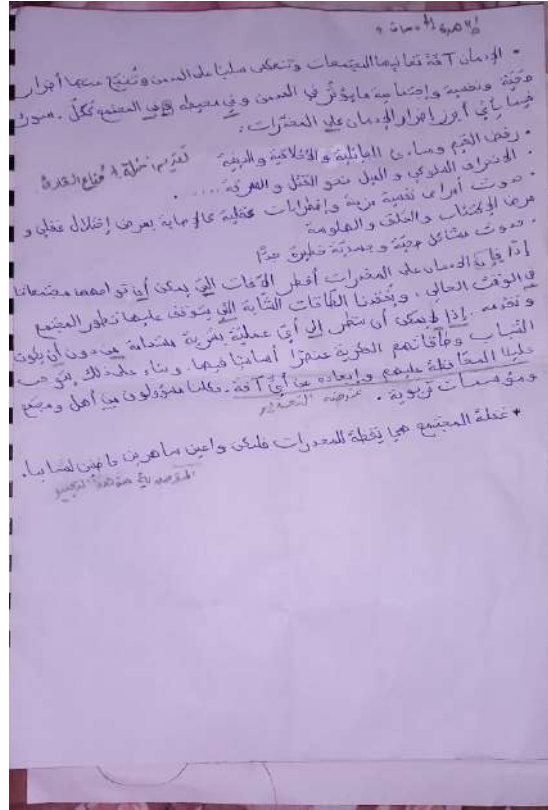 • الإدمان آفة تعاني منها المجتمعات وتنعكس سلبا على المدمن وتُنتج عنها أضرار
صحيّة ونفسية واجتماعية ما يؤثّر في المدمن وفي محيطه وفي المجتمع ككلّ.
فيما يأتي أبرز أضرار الإدمان على المخدّرات:
• رفض القيم ومبادئ العائلية والأخلاقية والدينية
• الانحراف السلوكي والميل نحو القتل والسرقة.....
• حدوث أمراض نفسية مزمنة واضطرابات عقلية كالإصابة بمرض إختلال عقلي و
مرض الإكتئاب والقلق والهلوسة
• حدوث مشاكل صحيّة وجسديّة خطيرة جدًّا
إذًا فإن الإدمان على المخدرات أخطر الآفات التي يمكن أن تواجهها مجتمعاتنا
في الوقت الحالي، ويفقدنا الطاقات الشابة التي يتوقف عليها تطور المجتمع
وتقدمه. إذا لا يمكن أن ننظر إلى أيّ عملية من دون أن يكون
الشباب وطاقاتهم الفكرية عنصرًا أساسيًا فيها. وبناء على ذلك يتوجب
علينا المحافظة عليهم وإبعاده عن أيّ آفة. فكلنا مسؤولون من أهل ومجتمع
ومؤسسات تربوية.
* غفلة المجتمع هي يقظة للمخدرات فلنكن واعين ساهرين